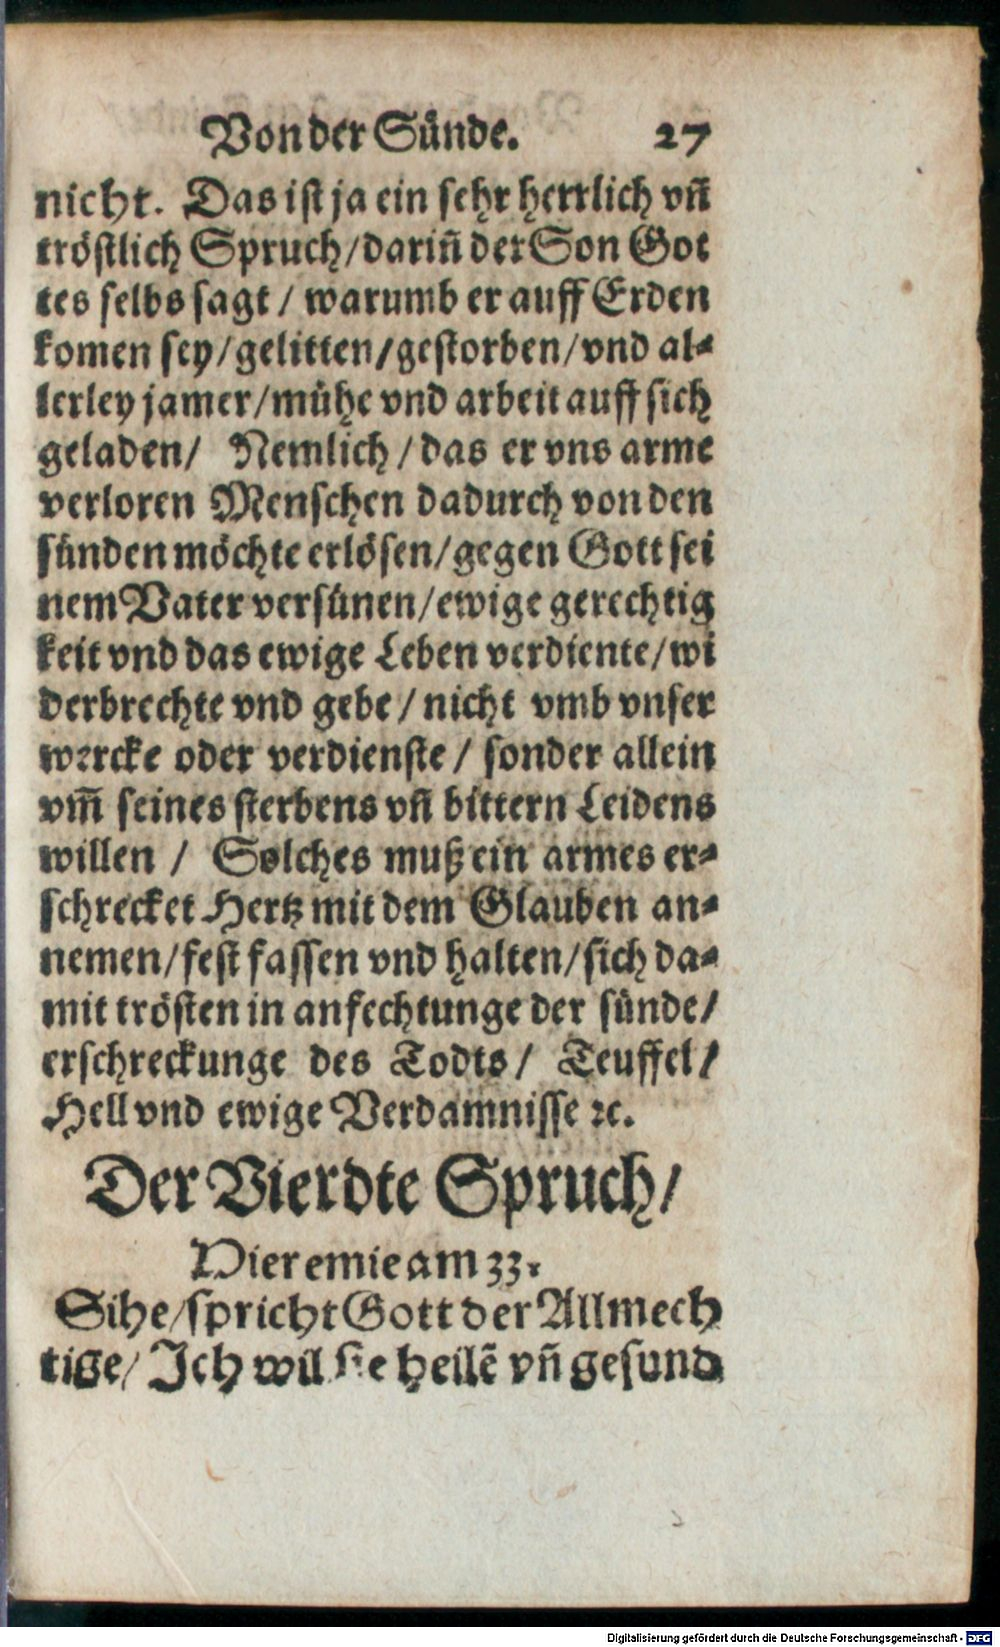 Von der Sünde. 27
nicht. Das ist ja ein sehr herrlich vñ
tröstlich Spruch/darin̄ der Son Got
tes selbs sagt / warumb er auff Erden
komen sey/gelitten/gestorben/vnd al-
lerley jamer/mühe vnd arbeit auff sich
geladen/ Nemlich / das er vns arme
verloren Menschen dadurch von den
sünden möchte erlösen/gegen Gott sei
nem Vater versünen/ewige gerechtig
keit vnd das ewige Leben verdiente/wi
derbrechte vnd gebe / nicht vmb vnser
wercke oder verdienste / sonder allein
vm̄ seines sterbens vñ bittern Leidens
willen / Solches muß ein armes er-
schrecket Hertz mit dem Glauben an-
nemen/fest fassen vnd halten/sich da-
mit trösten in anfechtunge der sünde/
erschreckunge des Todts/ Teuffel/
Hell vnd ewige Verdamnisse ꝛc.
Der Vierdte Spruch/
Hieremie am 33.
Sihe/spricht Gott der Allmech
tige/ Ich wil sie heilẽ vñ gesund
Digitalisierung gefördert durch die Deutsche Forschungsgemeinschaft - DFG